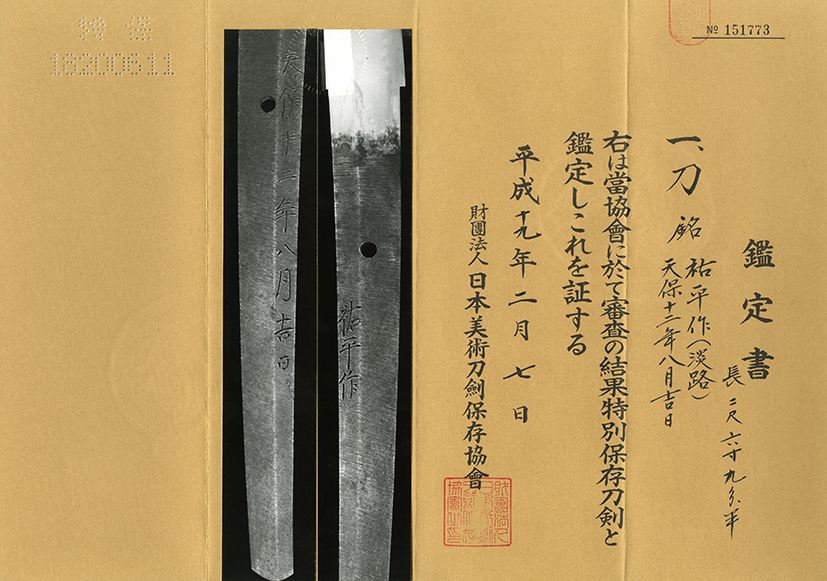 № 151773
鑑定書
長二尺六寸九分半
一、刀 銘 祐平作(淡路)
天保十二年八月吉日
右は當協會に於て審査の結果特別保存刀剣と
鑑定しこれを証する
平成十九年二月七日
財團法人 日本美術刀劍保存協會
祐平作
天保十二年八月吉日
特保
18200611